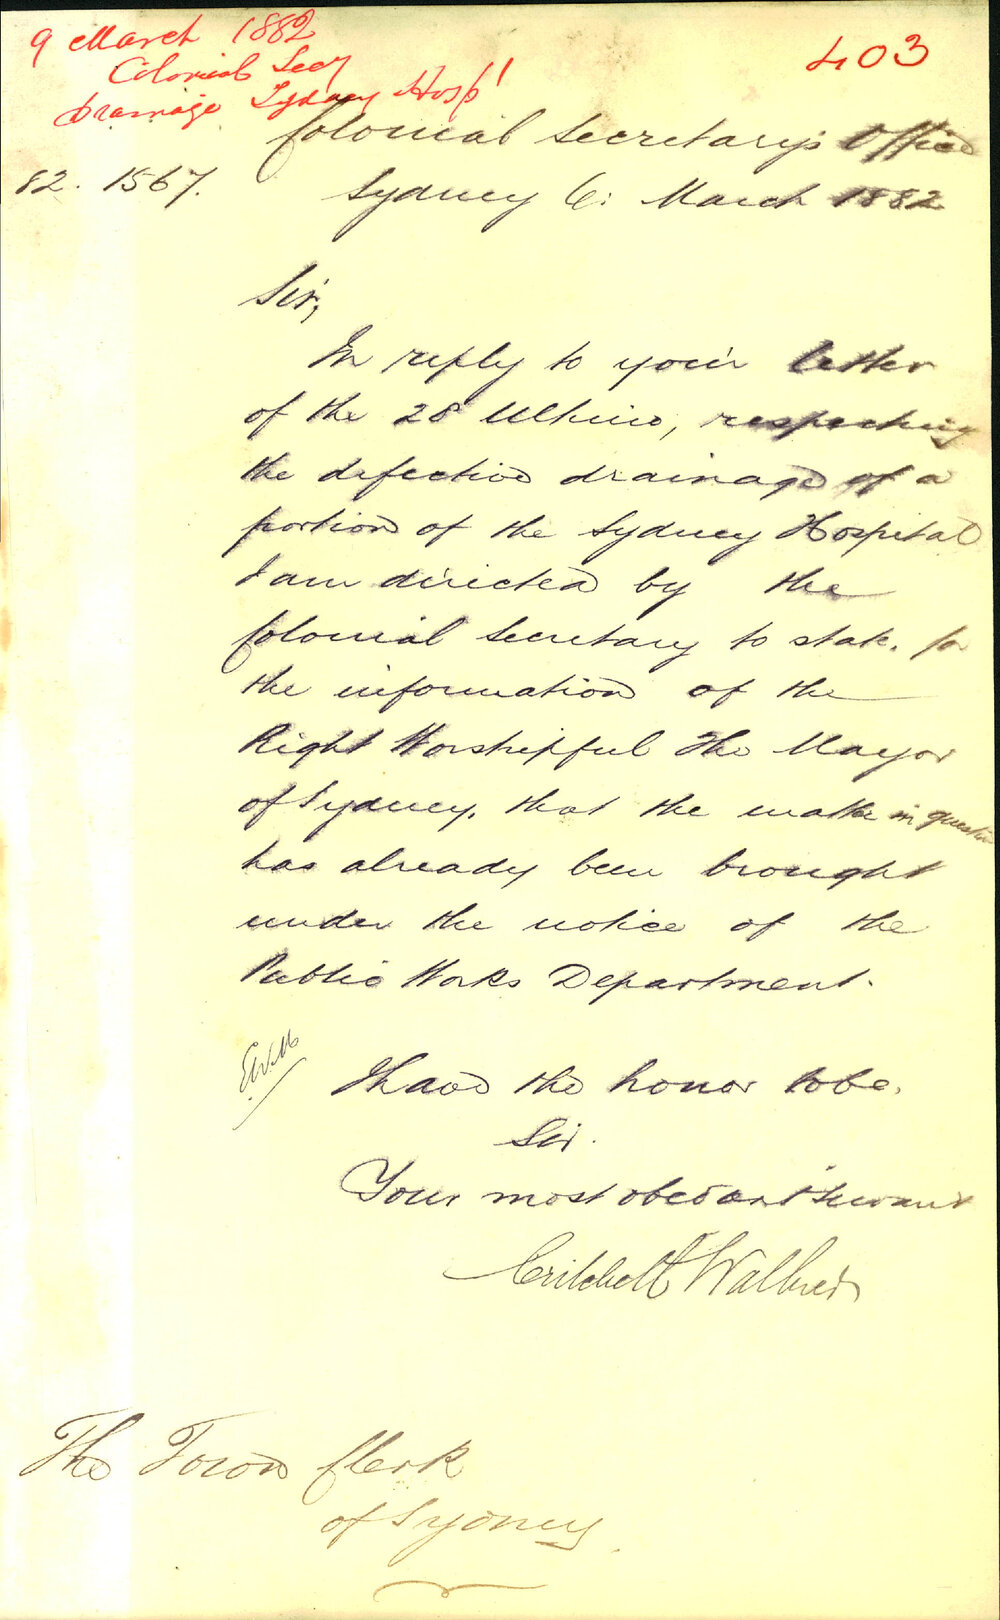 9 March 1882
Colonial Secy
drainage Sydney Hosp'l
403
Colonial Secretary's Office
82. 1567.
Sydney 6: March 1882
Sir,
In reply to your letter
of the 28 Ultimo, respecting
the defective drainage of a
portion of the Sydney Hospital
I am directed by the
Colonial Secretary to state, for
the information of the
Right Worshipful The Mayor
of Sydney, that the matter in question
has already been brought
under the notice of the
Public Works Department.
I have the honor to be,
Sir.
Your most obedient Servant
Critchett Walker
The Town Clerk
of Sydney.